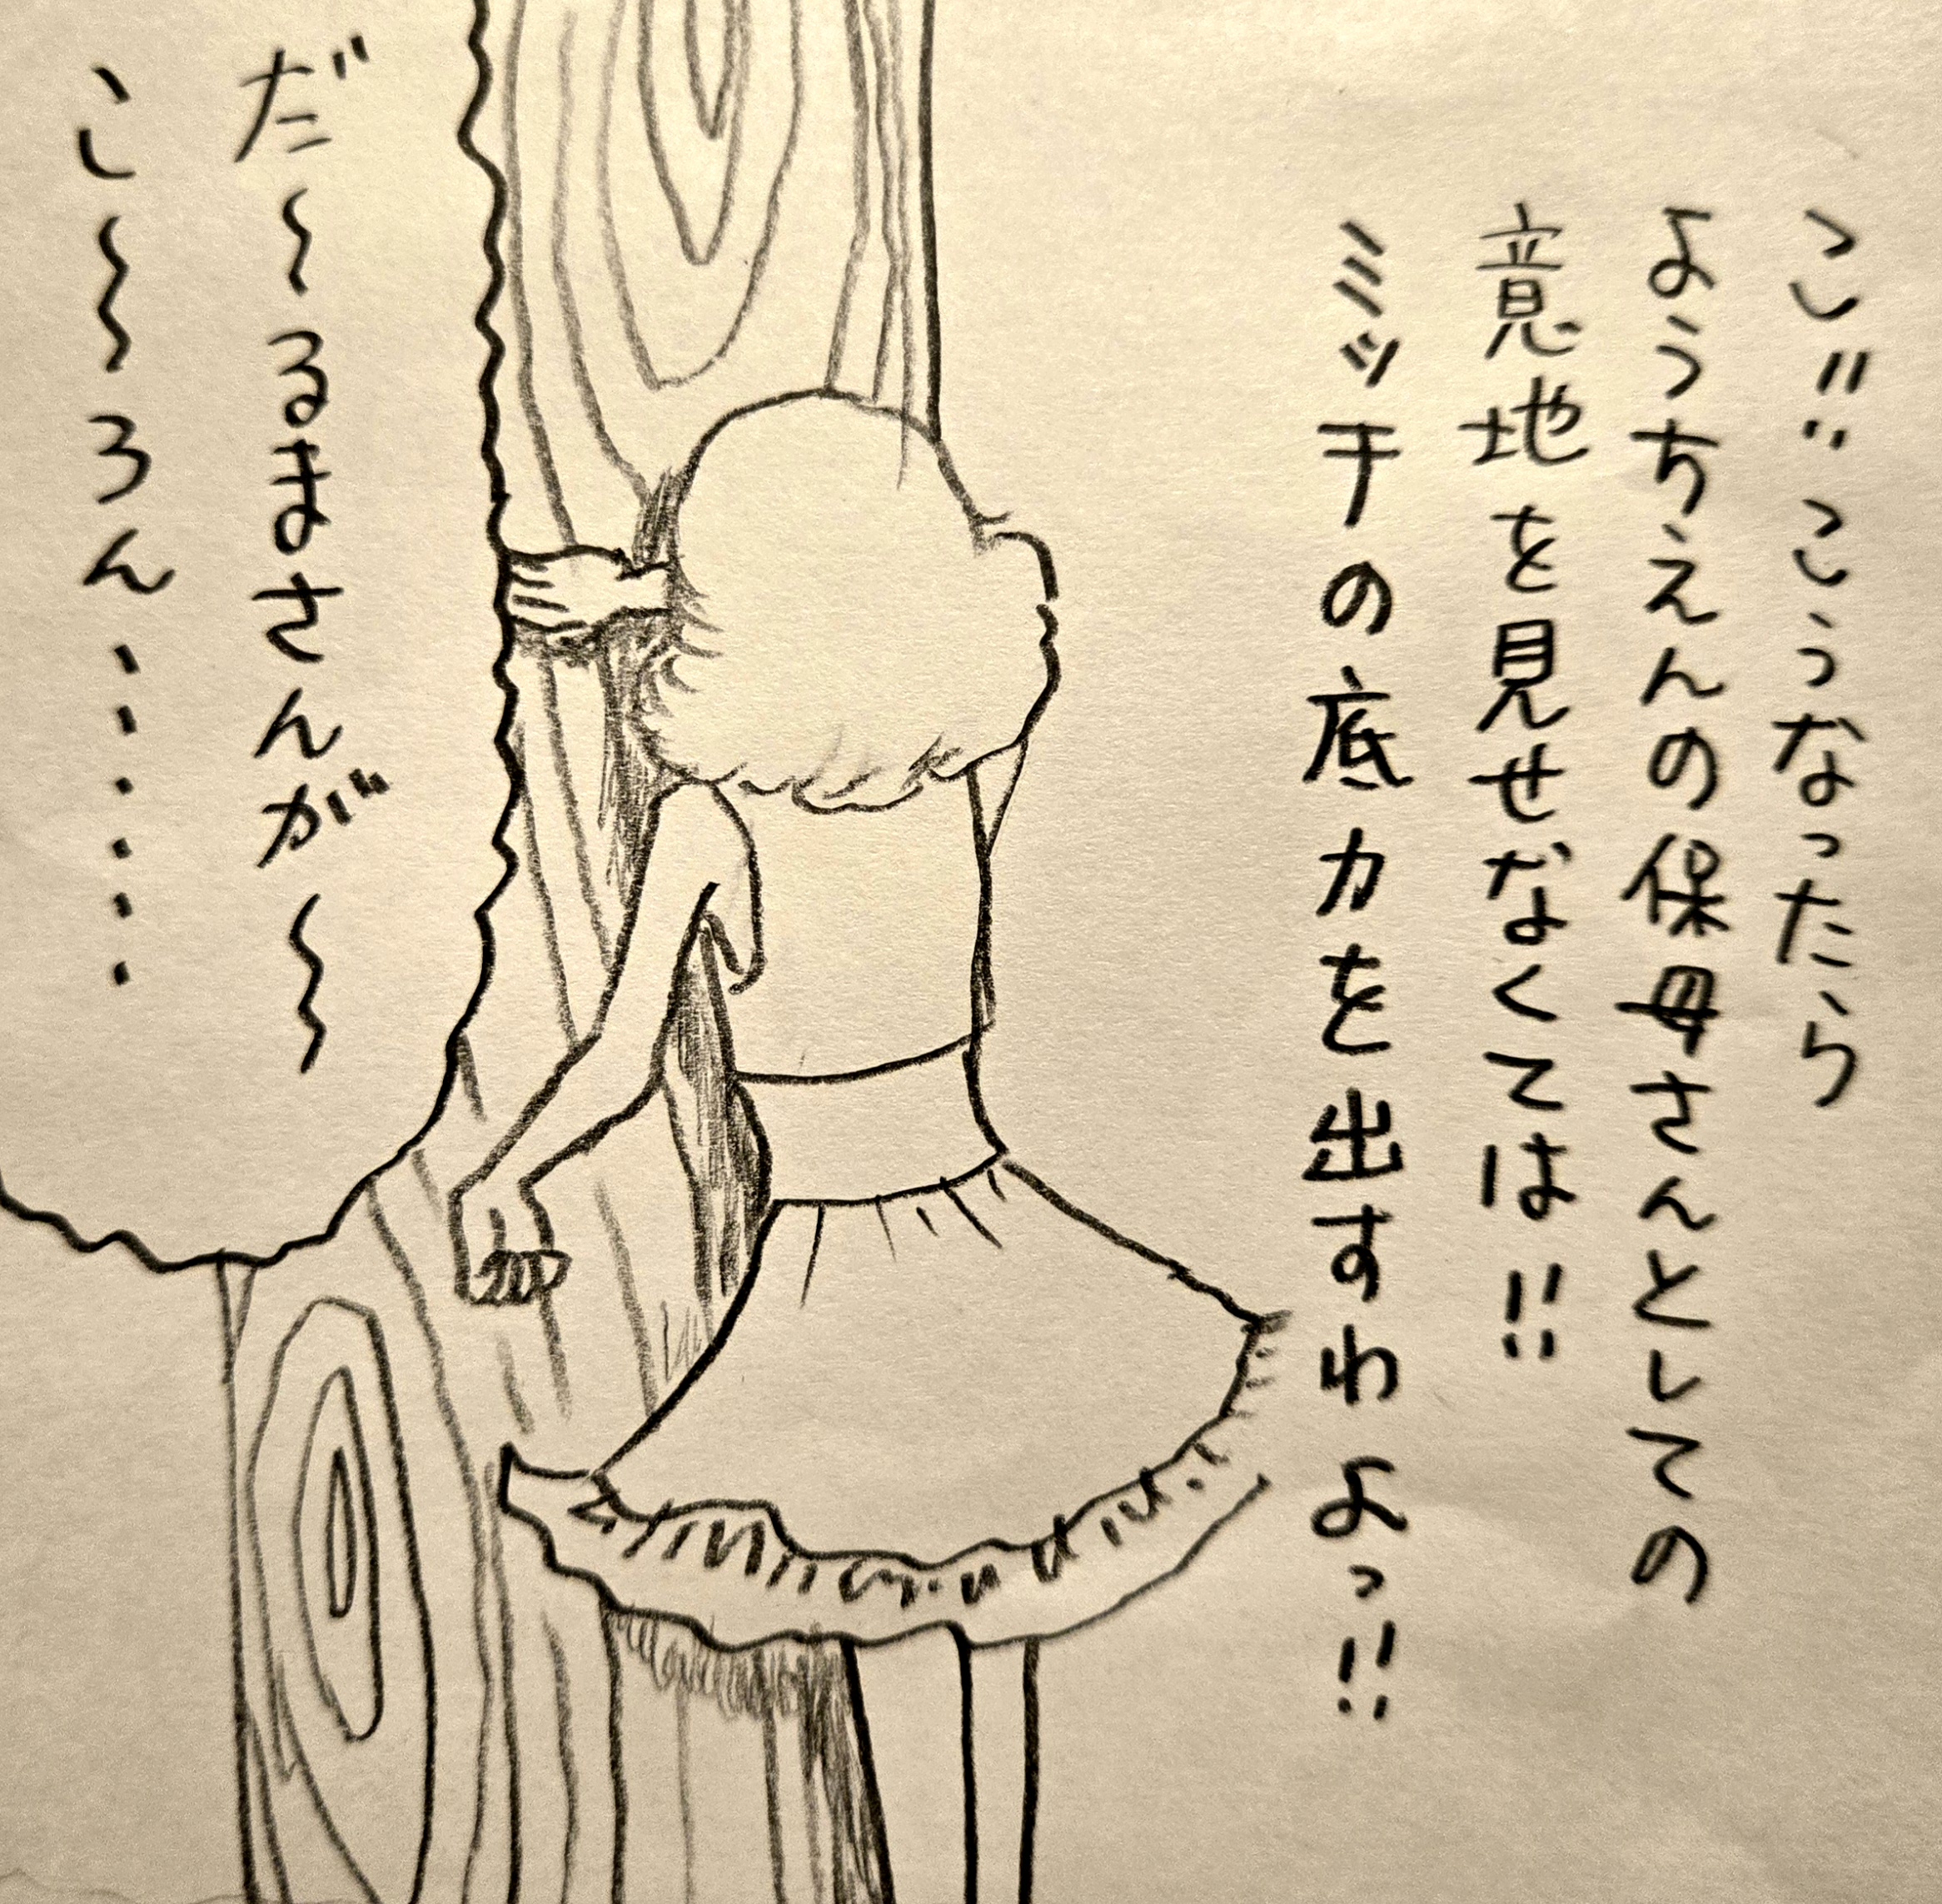 こ!!こうなったら
ようちえんの保母さんとしての
意地を見せなくては!!
ミッチの底力を出すわよっ!!
だ〜るまさんが〜
こ〜〜ろん・・・・・・